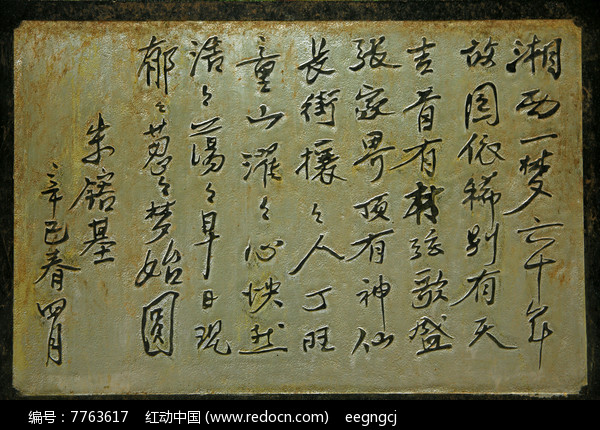 湘西一梦六十年
故园依稀别有天
吉首有材弦歌盛
张家界顶有神仙
长街攘々人丁旺
童山濯々心怏然
浩々荡々早日现
郁々葱々梦始圆
朱镕基
辛巳春四月
编号：7763617 红动中国 (www.redocn.com) eegngcj